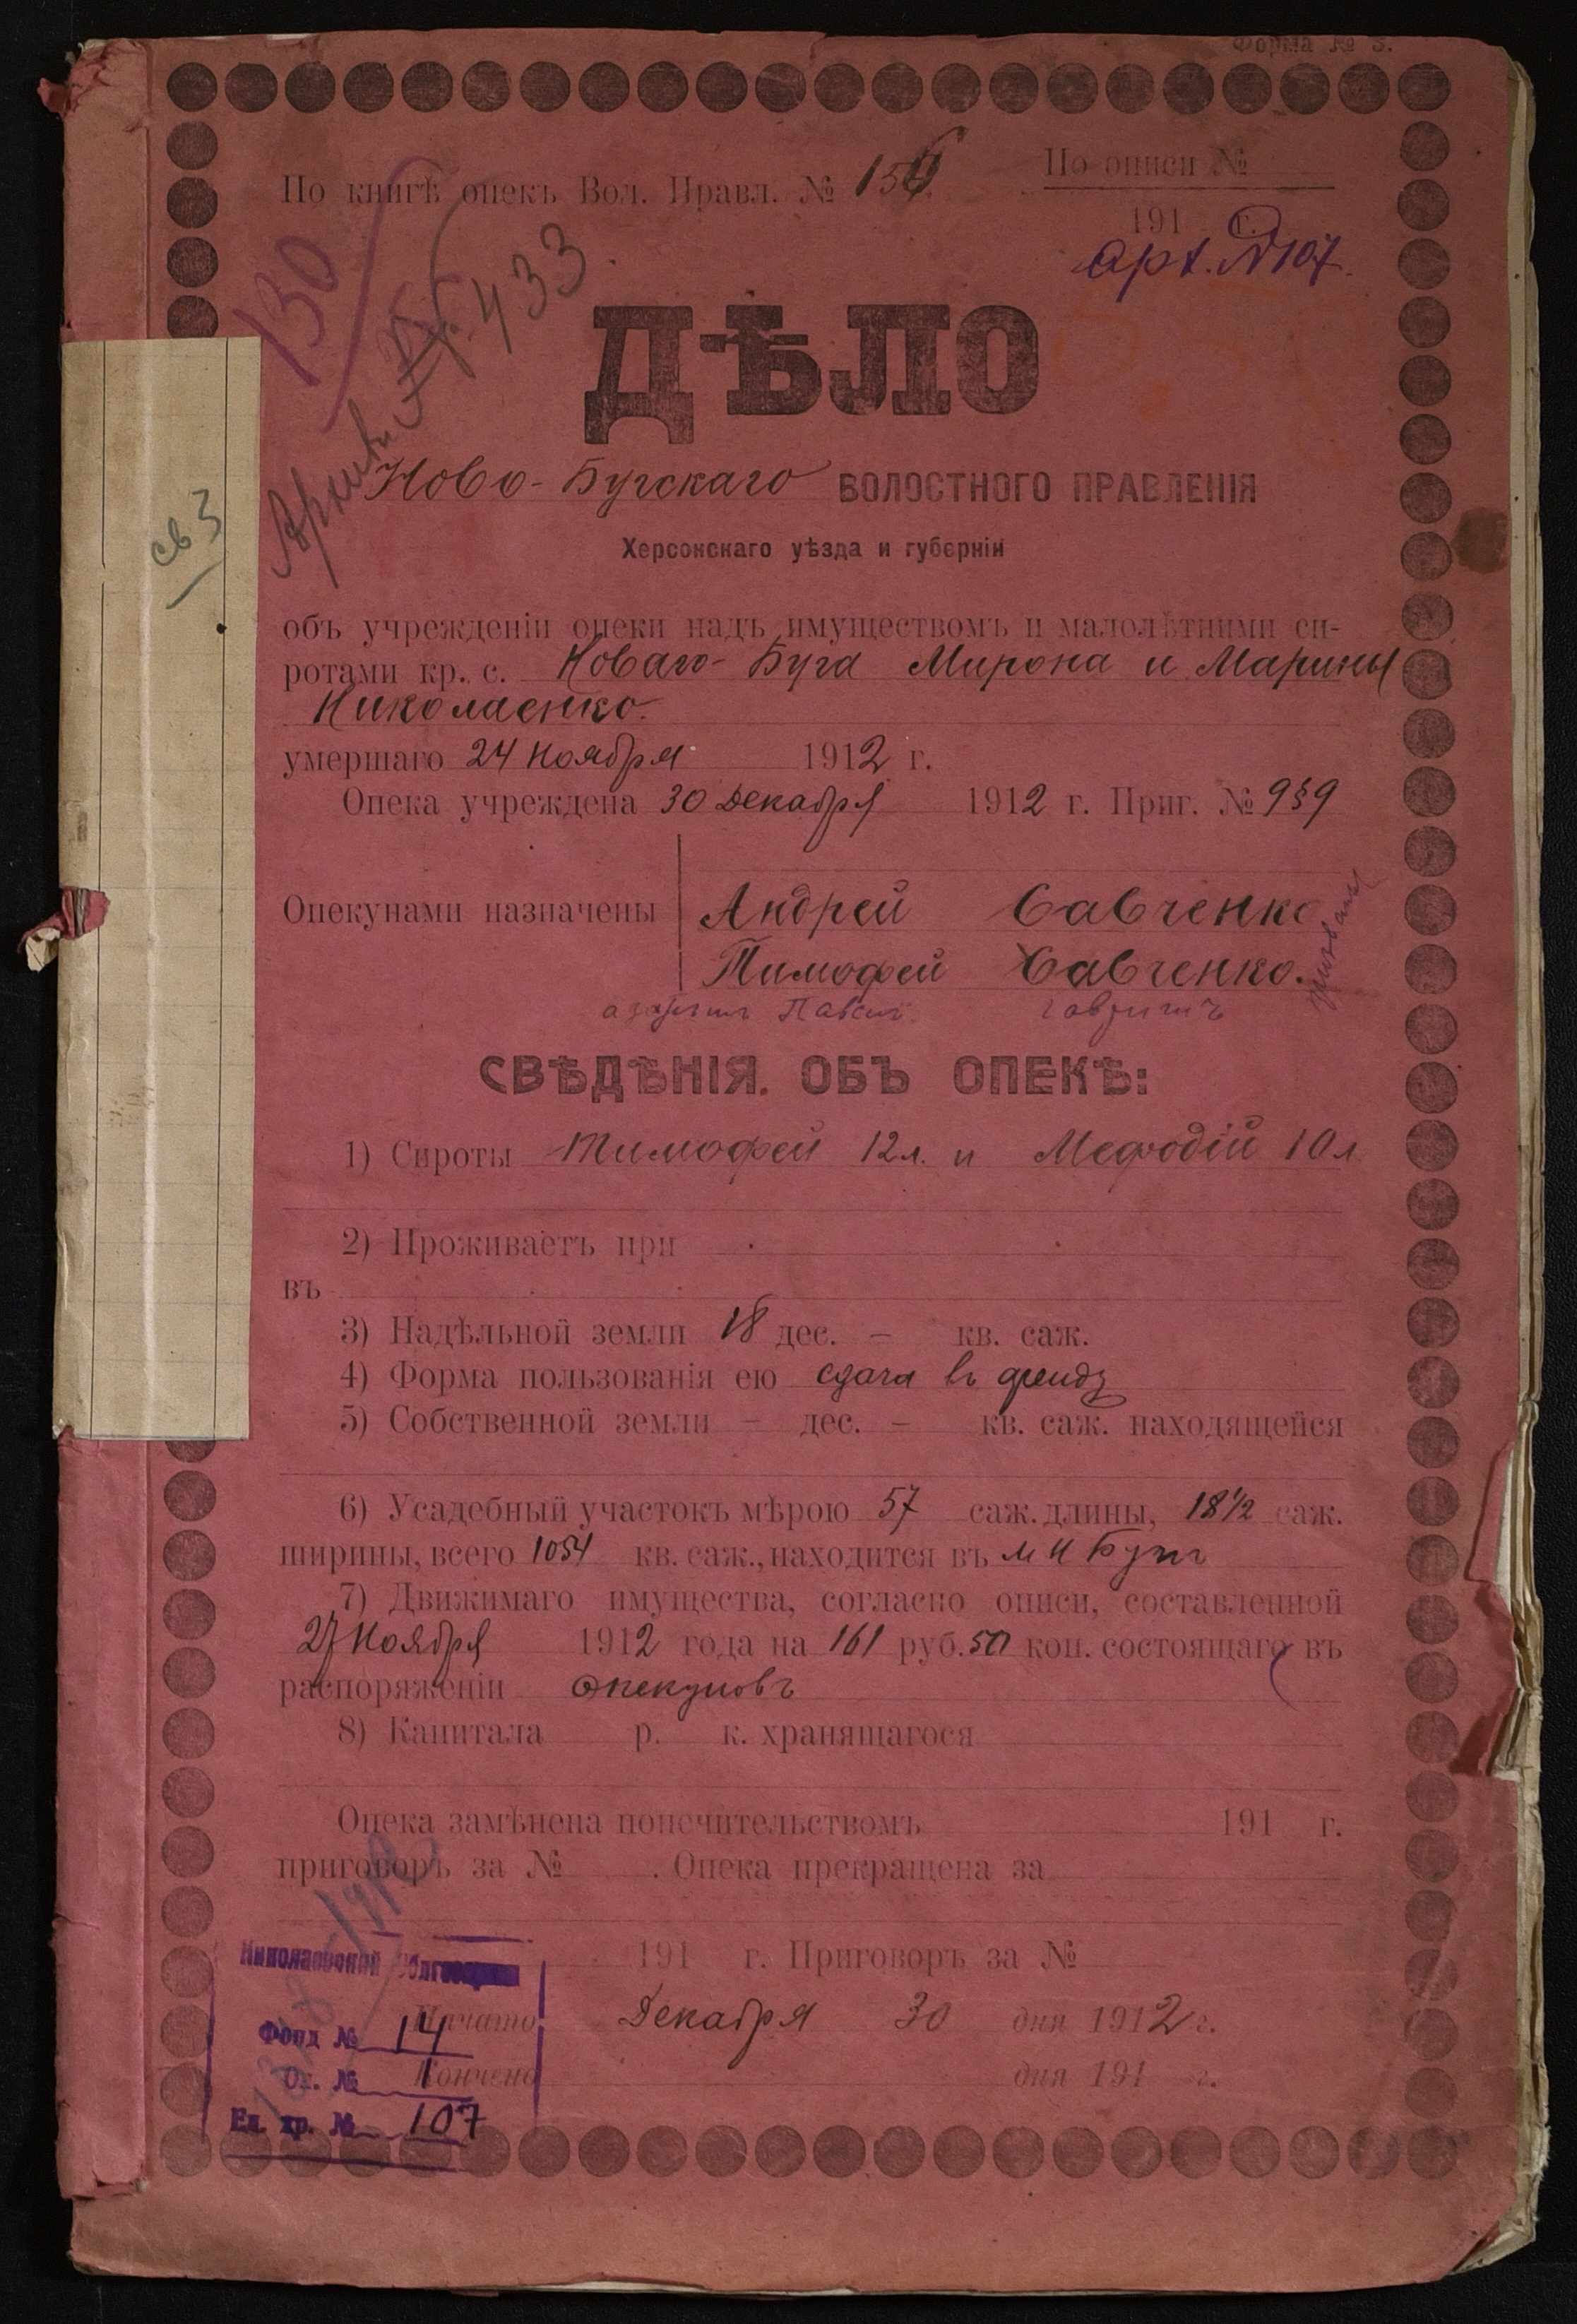 Форма № 3.
По книгѣ опекъ Вол. Правл. № 156
По описи №
191 г.
арх. № 107.
130
433
ДѢЛО
Ново-Бугскаго ВОЛОСТНОГО ПРАВЛЕНІЯ
Херсонскаго уѣзда и губерніи
св 3
объ учрежденіи опеки надъ имуществомъ и малолѣтними си-
ротами кр. с. Новаго-Буга Мирона и Марины
Николаенко.
умершаго 24 Ноября 1912 г.
Опека учреждена 30 Декабря 1912 г. Приг. № 989
Опекунами назначены Андрей Савченко
Тимофей Савченко.
СВѢДѢНІЯ ОБЪ ОПЕКѢ:
1) Сироты Тимофей 12 л. и Мефодій 10 л
2) Проживаетъ при
въ
3) Надѣльной земли 18 дес. – кв. саж.
4) Форма пользованія ею сдача въ аренду
5) Собственной земли – дес. – кв. саж. находящейся
6) Усадебный участокъ мѣрою 57 саж. длины, 18 1/2 саж.
ширины, всего 1054 кв. саж., находится въ м Н Бугѣ
7) Движимаго имущества, согласно описи, составленной
27 Ноября 1912 года на 161 руб. 50 коп. состоящаго въ
распоряженіи опекуновъ
8) Капитала р. к. хранящагося
Опека замѣнена попечительствомъ 191 г.
приговоръ за № . Опека прекращена за
191 г. Приговоръ за №
Начато Декабря 30 дня 1912 г.
Кончено дня 191 г.
Николаевский Облгосархив
Фонд № 14
Оп. № 1
Ед. хр. № 107